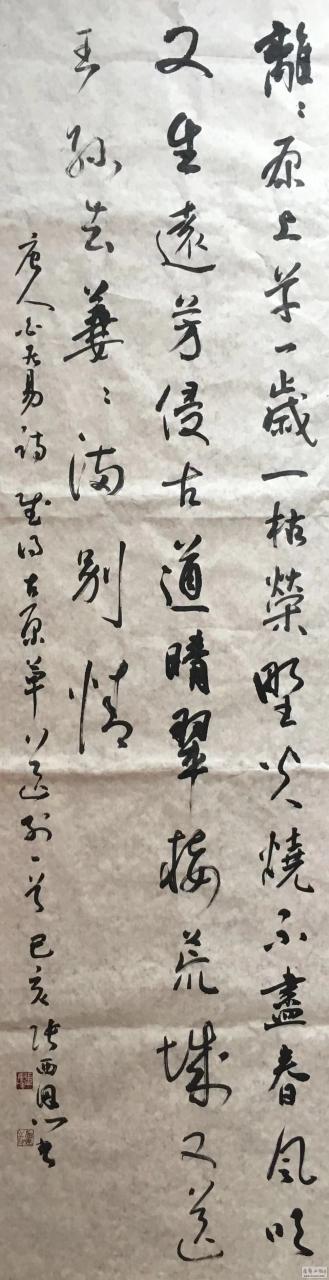 離〻原上草一歲一枯榮野火燒不盡春風吹
又生遠芳侵古道晴翠接荒城又送
王孫去萋〻滿別情
唐人白居易詩賦得古原草送別一首己亥張西恩書